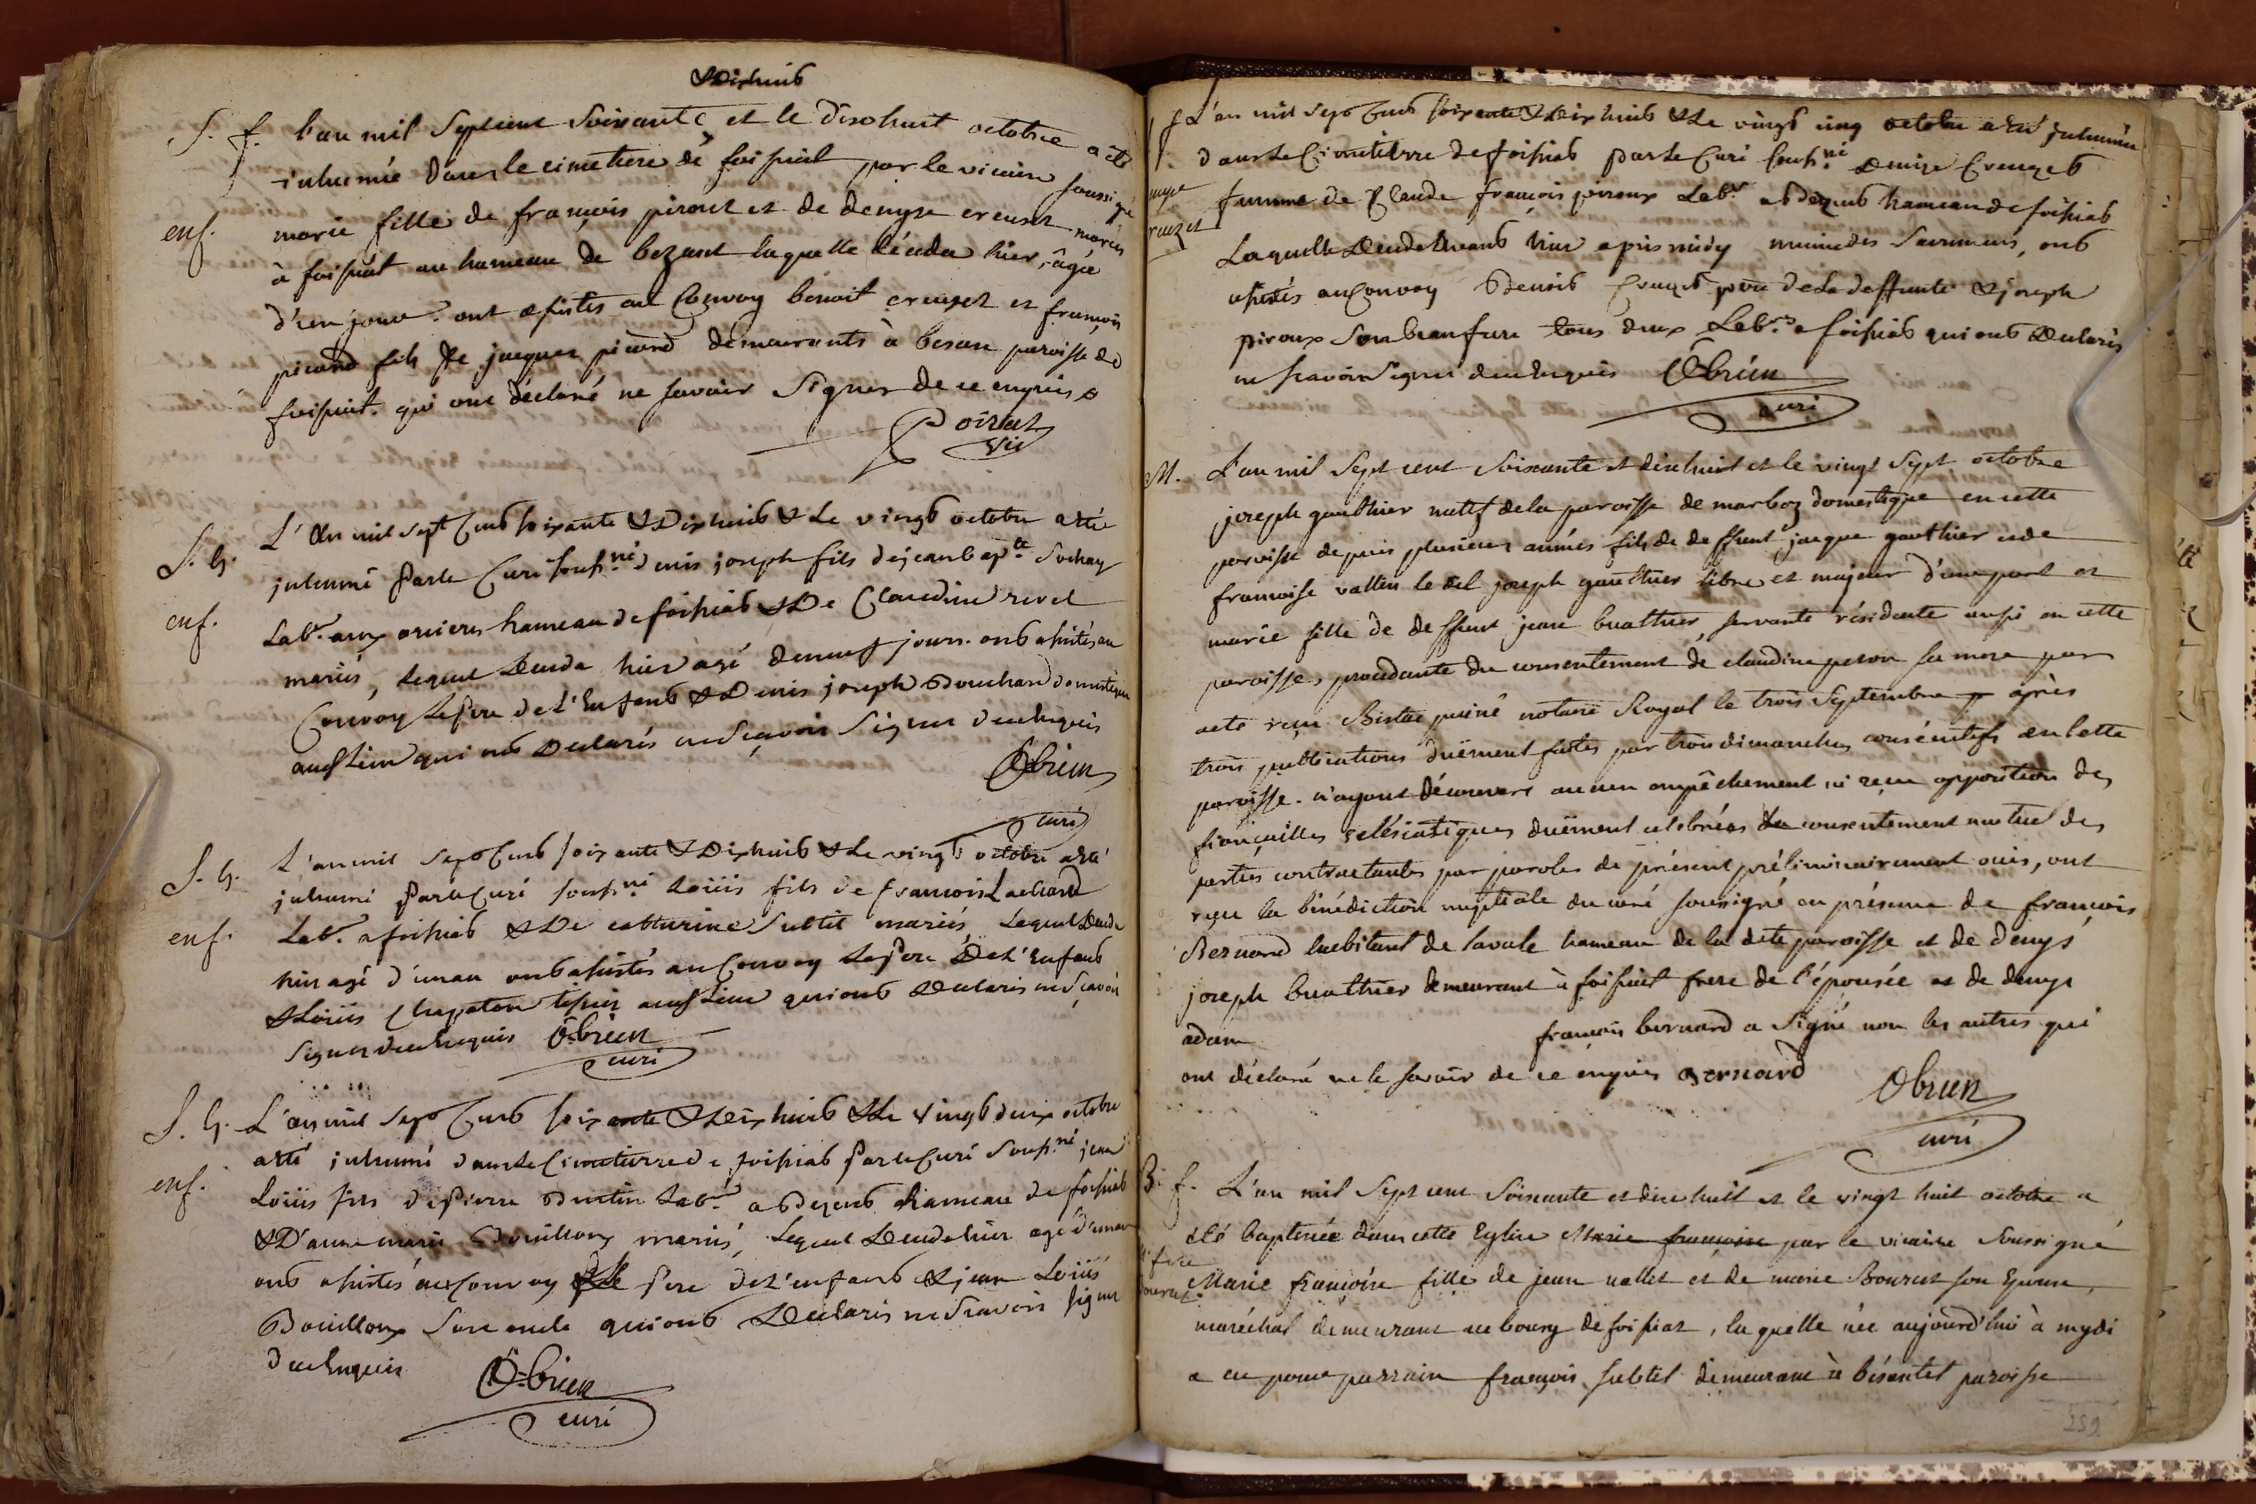 & Dixhuit
S. f. L'an mil septcent soixante et le dixohuit octobre a été
inhumée dans le cimetiere de foissiat par le vicaire soussigné
enf. marie fille de françois piroux et de denyse creuset mariés
à foissiat au hameau de bezant laquelle décéda hier, âgée
d'un jour. ont assistes au Convoy benoit creuset et françois
picard fils de jacques picard demeurants à besan paroisse de
foissiat. qui ont déclaré ne savoir signer de ce enquis
Poizat
vic
S. G. L'An mil sept Cent soixante & Dixhuit & Le vingt octobre a eté
inhumé Par le Curé souss.né denis joseph fils de jean bapt.te Sochay
enf. Lab.r aux oriers hameau de foissiat & De Claudine revel
mariés, lequel deceda hier agé de neuf jours. ont assistés au
Convoy Le Pere de L'Enfant & Denis joseph Bouchard domestique
aud Lieu qui ont declarés ne sçavoir Signer de ce Enquis
Obrien
curé
S. G. L'an mil Sept Cent soixante & Dixhuit & Le vingt octobre a eté
inhumé Par le Curé souss.né Loüis fils de françois Lachard
enf. Lab.r a foissiat & De catherine Subtil mariés, Lequel Deceda
hier agé d'un an ont assistés au Convoy Le Pere De L'Enfant
& Loüis Chapaton aud Lieu qui ont declarés ne Sçavoir
Signer de ce Enquis Obrien
curé
S. G. L'an mil Sept Cent soixante & Dix huit & Le vingt deux octobre
a eté inhumé dans Le Cimetierre de foissiat Par Le Curé Souss.né jean
enf. Loüis fils de Pierre Lab.r a Bezent hameau de foissiat
& D'anne marie Bouilloux mariés, Lequel Deceda hier agé d'un an
ont assistés au Convoy Le Pere de L'enfant & jean Loüis
Bouilloux Son oncle qui ont Declarés ne Scavoir Signer
de ce Enquis
Obrien
curé
f L'an mil sept Cent soixante & Dix huit & Le vingt cinq octobre a eté inhumée
dans Le Cimetierre de foissiat Par Le Curé souss.né Denise Creuzet
femme de Claude françois piroux Lab.r a Bezent hameau de foissiat
Laquelle Deceda avant hier apres midy munie des Sacremens, ont
assistés au Convoy Benoit Creuzet père de La deffunte & joseph
piroux Son beaufrere tous deux Lab.rs a foissiat qui ont Declarés
ne scavoir Signer de ce Enquis Obrien
curé
M. L'an mil sept cent soixante et dixhuit et le vingt sept octobre
joseph gauthier natif de la paroisse de marboz domestique en cette
paroisse depuis plusieurs années fils de deffunt jacque gauthier et de
françoise vallin le del joseph gauthier libre et majeur d'une part et
marie fille de deffunt jean buathier, servante résidente aussi en cette
paroisse, procedante du consentement de claudine peron sa mere par
acte reçu puiné notaire Royal le trois septembre après
trois publications duëment faites par trois dimanches consécutifs en cette
paroisse. n'ayant découvert aucun empêchement ni reçu opposition des
fiançailles eclésiastiques duëment celebrées du consentement mutuel des
parties contractantes par paroles de présent préliminairement ouis, ont
reçu la bénédiction nuptiale du curé soussigné en présence de françois
Bernard habitant de lavale hameau de la dite paroisse et de denys
joseph buathier demeurant à foissiat frere de l'épousée et de denys
adam françois bernard a signé non les autres qui
ont déclaré ne le savoir de ce enquis Bernard
Obrien
curé
B. f. L'an mil sept cent soixante et dix huit et le vingt huit octobre a
été baptisée dans cette Eglise Marie françoise par le vicaire soussigné
Marie françoise fille de jean vallet et de marie Bourcet son Epouse,
maréchal demeurant au bourg de foissiat, la quelle née aujourd'hui à mydi
a eu pour parrain françois subtil demeurant à bésentet paroisse
259